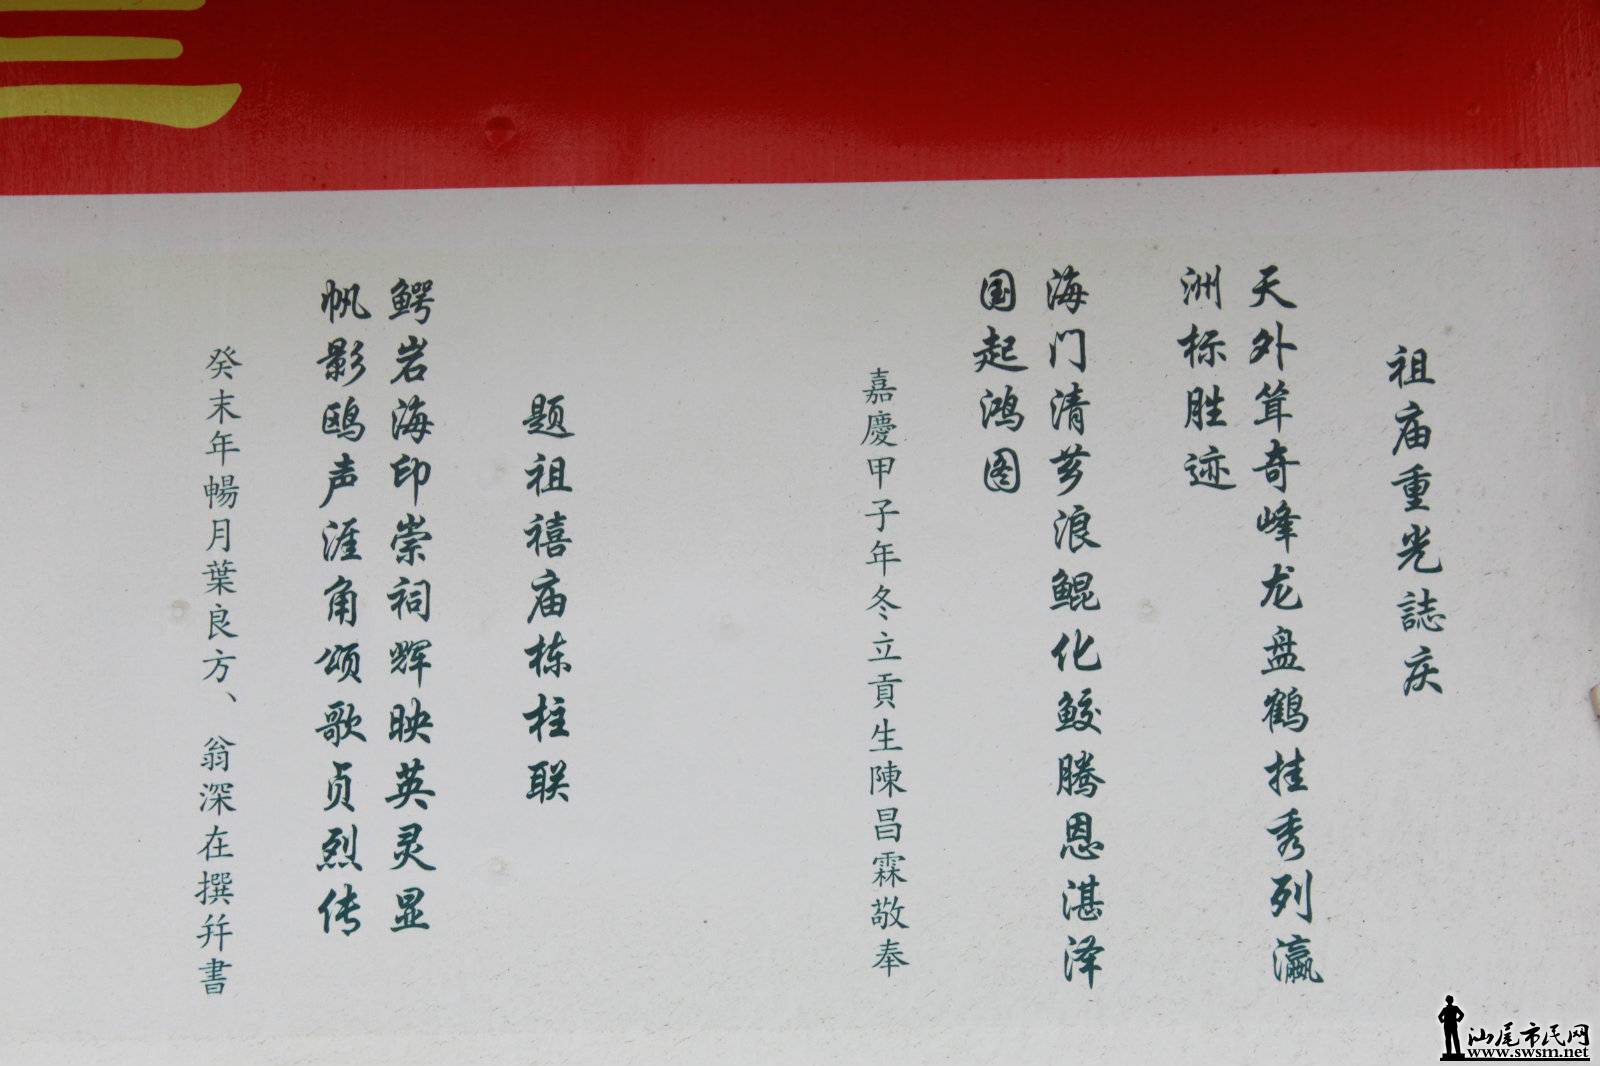 祖庙重光誌庆
天外耸奇峰龙盘鹤挂秀列瀛
洲标胜迹
海门清芗浪鲲化鲛腾恩湛泽
国起鸿图
嘉慶甲子年冬立貢生陳昌霖敬奉
题祖禧庙栋柱联
鳄岩海印崇祠辉映英灵显
帆影鸥声涯角颂歌贞烈传
癸未年暢月葉良方、翁深在撰幷書
汕尾市民网
www.swsm.net